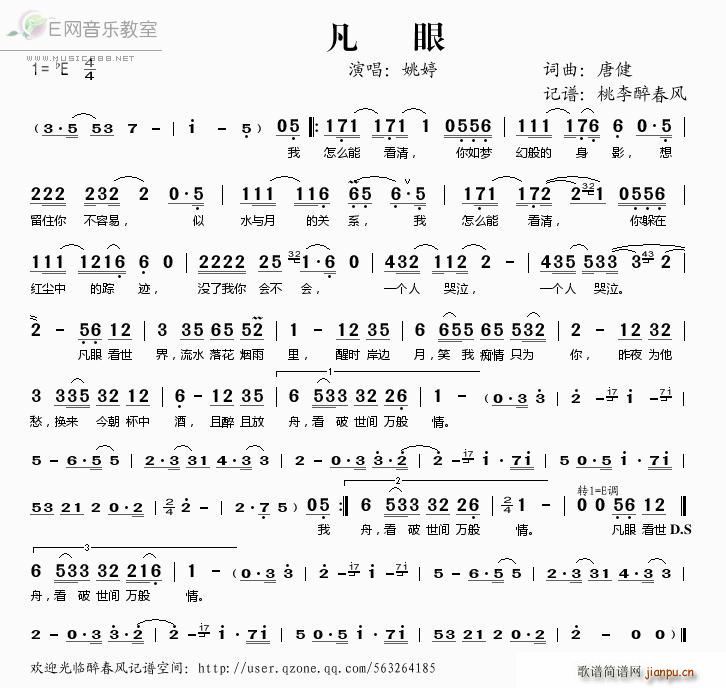 E网音乐教室
www.music888.net
凡 眼
1=♭E 4/4 演唱：姚婷 词曲：唐健
记谱：桃李醉春风
(3·5 53 7 - | i - 5) 05 |: 171 171 1 0556 | 111 176 6 0·5 |
我 怎么能 看清， 你如梦 幻般的 身 影， 想
222 232 2 0·5 | 111 116 65 6·5 | 171 172 2 32 1 0556 |
留住你 不容易， 似 水与月 的关 系， 我 怎么能 看清， 你躲在
111 1216 6 0 | 2222 25 32 1·6 0 | 432 112 2 - | 435 533 3 43 2 |
红尘中 的踪 迹， 没了我你 会不 会， 一个人 哭泣， 一个人 哭泣。
2 - 56 12 | 3 35 65 52 | 1 - 12 35 | 6 655 65 532 | 2 - 12 32 |
凡眼看世 界，流水 落花 烟雨 里， 醒时 岸边 月，笑 我 痴情 只为 你， 昨夜 为他
3 335 32 12 | 6 - 12 35 | 6 533 32 26 | 1 - (0·3 3 | 2 i7 i 0·3 |
愁，换来 今朝 杯中 酒， 且醉 且放 舟，看 破 世间 万般 情。
5 - 6·5 5 | 2·3 31 4·3 3 | 2 - 0·3 3·2 | 2 - i7 i · 7i | 5 0·5 i · 7i |
53 21 2 0·2 | 2/4 2 - | 2·7 5) 05 :| 6 533 32 26 | 2/4 1 - | 0 0 56 12 ||
转1=E调
我 舟，看 破 世间 万般 情。 凡眼 看世 D.S
6 533 32 216 | 1 - (0·3 3 | 2 - i7 i 0·3 | 5 - 6·5 5 | 2·3 31 4·3 3 |
舟，看 破 世间 万般 情。
2 - 0·3 3·2 | 2 - i7 i · 7i | 5 0·5 i · 7i | 53 21 2 0·2 | 2 - 0 0) |
欢迎光临醉春风记谱空间：http://user.qzone.qq.com/563264185
歌谱简谱网
jianpu.cn